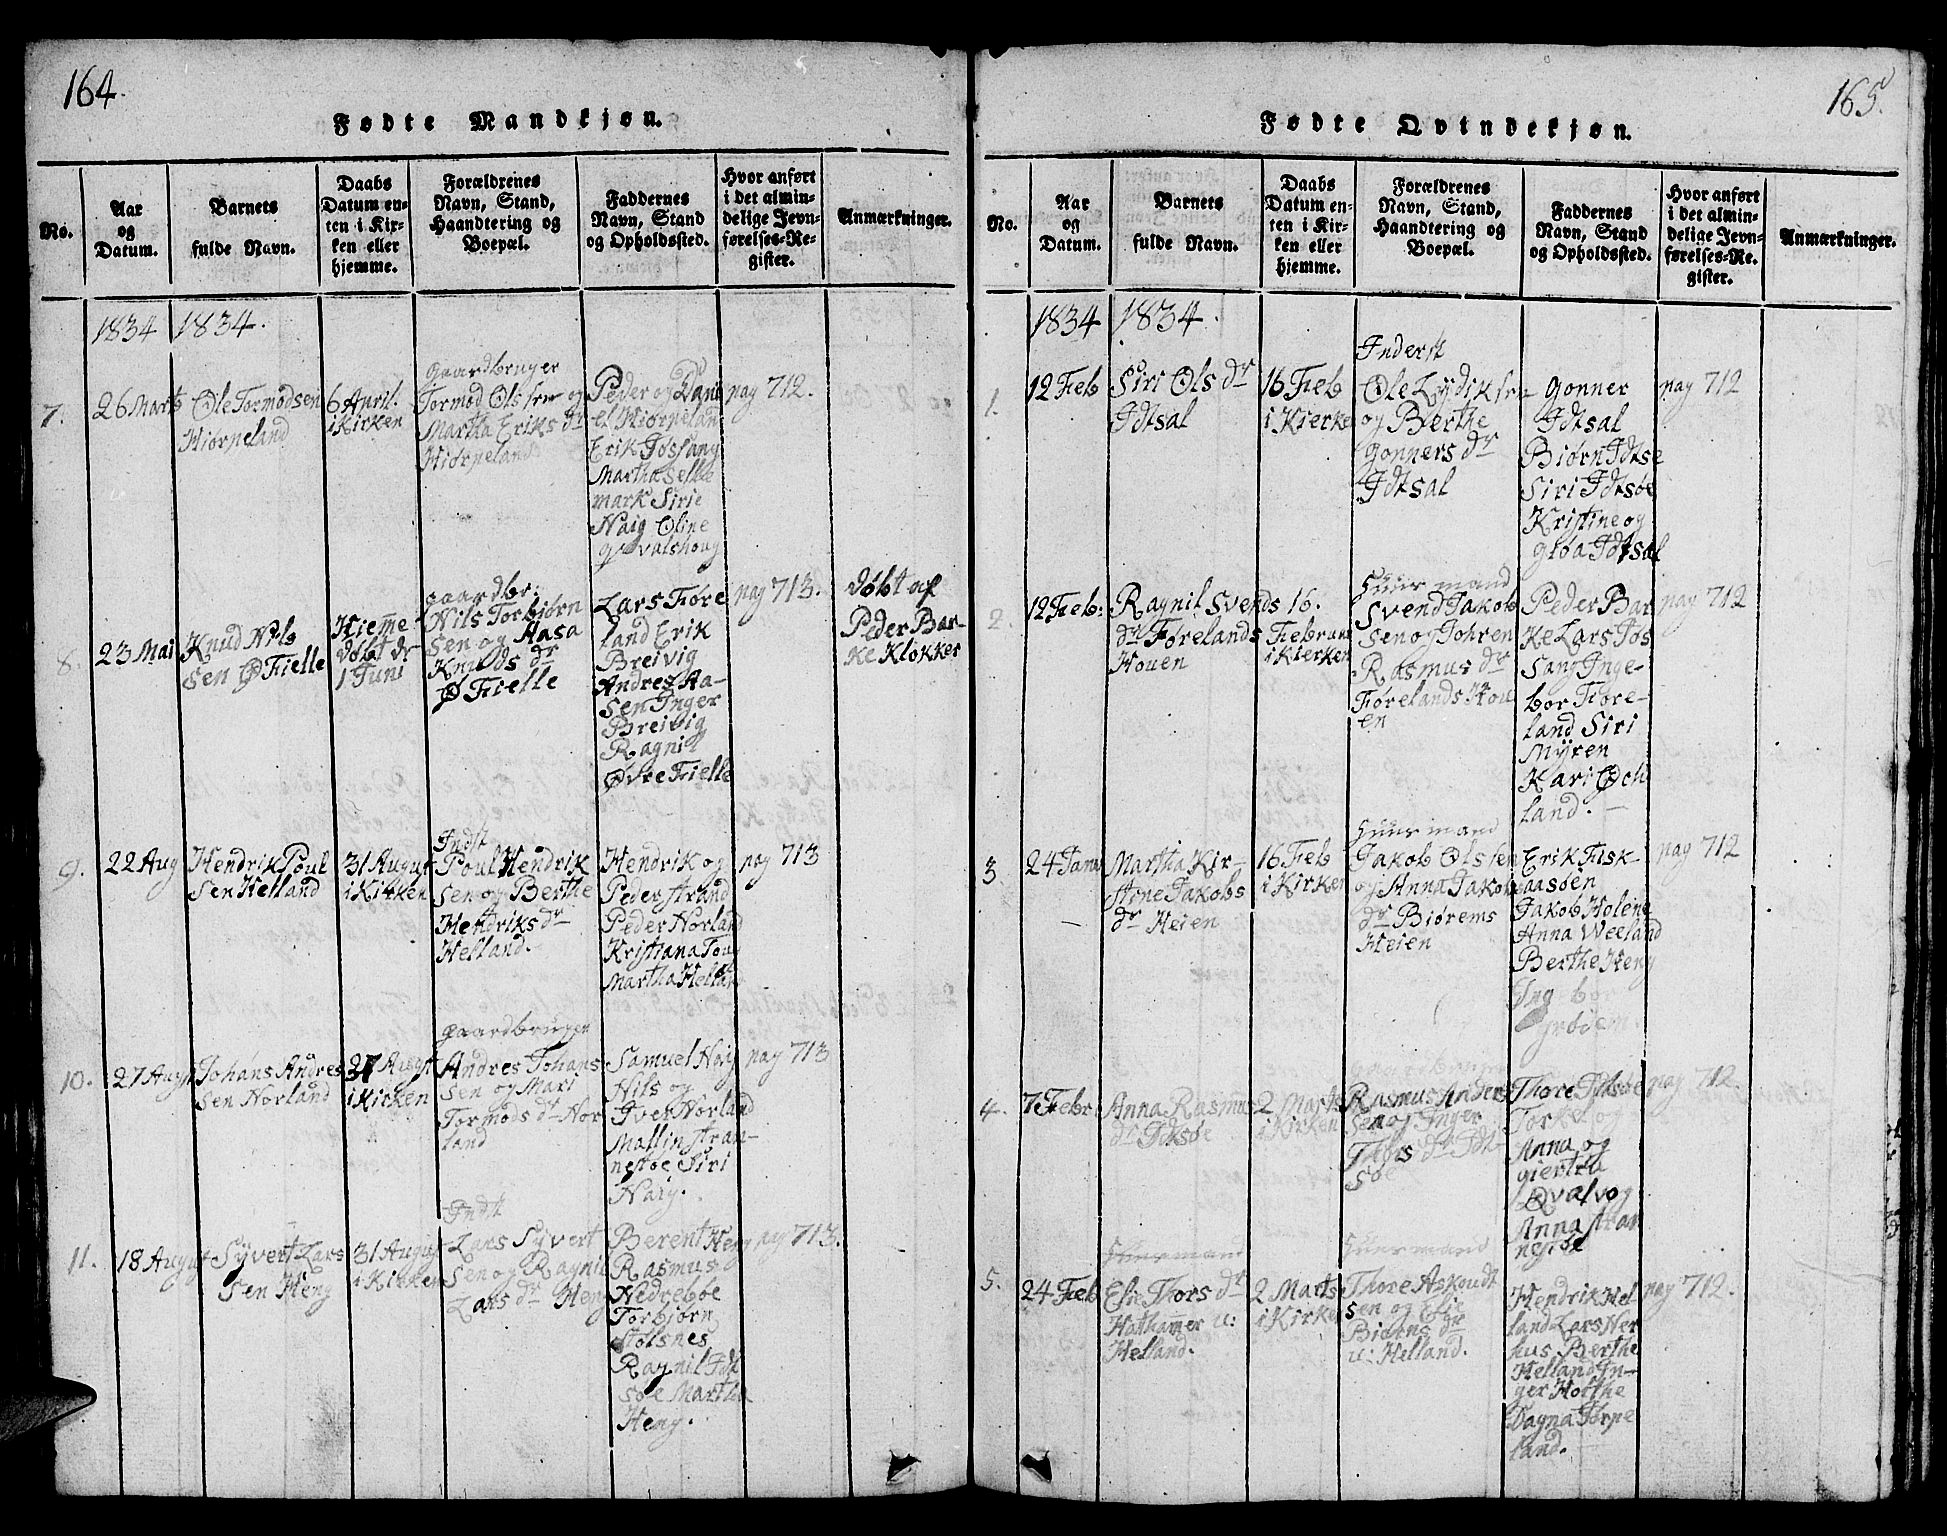 164.
Fødte Mandkjøn.
No.
Aar
og
Datum.
Barnets
fulde Navn.
Daabs
Datum en-
ten i Kir-
ken eller
hjemme.
Forældrenes
Navn, Stand,
Haandtering og
Boepæl.
Faddernes
Navn, Stand
og Opholdssted.
Hvor anført
i det almin-
delige Jevn-
førelses-Re-
gister.
Anmærkninger.
1834
1834.
7.
26 Marts
Ole Tormodsen
Hiørpeland
6 April.
i Kirken
gaardbruger
Tormod Ols sen og
Martha Eriks dr
Hiørpeland
Peder og Dani
el Hiørpeland
Erik Jøssang
Martha Selle
mark Sirie
Naig Oline
gr valshoug
pag 712.
8.
23 Mai
Knud Nils
sen Ø Fielle
Hieme
døbt dr
1 Juni
gaardbr:
Nils Torbjørn
sen og Aasa
Knuds dr
Ø Fielle
Lars Føre
land Erik
Breivig
Andres Aa-
sen Inger
Breivig
Ragnil
Øvre Fielle
pag 713.
døbt af
Peder Bar-
ke Klokker
9.
22 Aug
Hendrik Poul
sen Helland
31 August
i Kirken
Indst
Poul Hendrik
sen og Berthe
Hendriks dr
Helland.
Hendrik og
Peder strand
Peder Norland
Kristiana Tou
Martha Helland
pag 713
10.
27 Augst
Johans Andres
sen Norland
27 August
i Kirken
gaardbruger
Andres Johans
sen og Mari
Tormods dr Nor
land
Samuel Naig
Nils og
Iver Norland
Mallin stran-
nestøe Siri
Naig.
pag 713
11.
18 August
Syvert Lars
sen Heng
31 August
i Kirken
Indst
Lars Syvert
sen og Ragnil
Lars dr Heng
Berent Heng
Rasmus
Nedrebøe
Torbjørn
Stolsnes
Ragnil Idt
søe Martha
Heng.
pag 713.
165.
Fødte Qvindekjøn.
No.
Aar
og
Datum.
Barnets
fulde Navn.
Daabs
Datum en-
ten i Kir-
ken eller
hjemme.
Forældrenes
Navn, Stand,
Haandtering og
Boepæl.
Faddernes
Navn, Stand
og Opholdssted.
Hvor anført
i det almin-
delige Jevn-
førelses-Re-
gister.
Anmærkninger.
1834
1834.
1.
12 Feb
Siri Ols dr
Idtsal
16 Feb
i Kierken
Inderst
Ole Lydiksen
og Berthe
Gonners dr
Idtsal
Gonner
Idtsal
Biørn Idtsø
Siri Idtsøe
Kristine og
gløa Idtsal
pag 712
2.
12 Feb:
Ragnil Svends
dr Førelands
Houen
16.
Februar
i Kierken
Huus mand
Svend Jakob
sen og Johren
Rasmus dr
Førelands Hou
en
Peder Bar
ke Lars Jøs
sang Inge-
bor Føre-
land Siri
Myren
Kari Øch
land.
pag 712
3
24 Janu
Martha Kir-
stene Jakobs
dr Heien
16 Feb
i Kirken
Huus mand
Jakob Olssen
og Anna Jakobs
dr Biørems
Heien
Erik Fisk-
aasøen
Jakob Holene
Anna Weeland
Berthe Heng
Ingebor
pag 712
4.
7 Febr
Anna Rasmus
dr Idtsøe
2 Marts
i Kirken
gaardbruger
Rasmus Anders
sen og Inger
Thors dr Idt
søe
Thore Idtsøe
Torke og
Anna og
giertru
Qvalvog
Anna stran
nestøe
pag 712.
5.
24 Feb
Huusmand
Elie Thors dr
Hathamer u:
Helland.
2 Marts
i Kirken
Huusmand
Thore Askoudt
sen og Elie
Biørns dr
u: Helland.
Hendrik Hel
land Lars Ner
hus Berthe
Helland In-
ger Holthe
Dagna Tørpe
land.
pag 712.